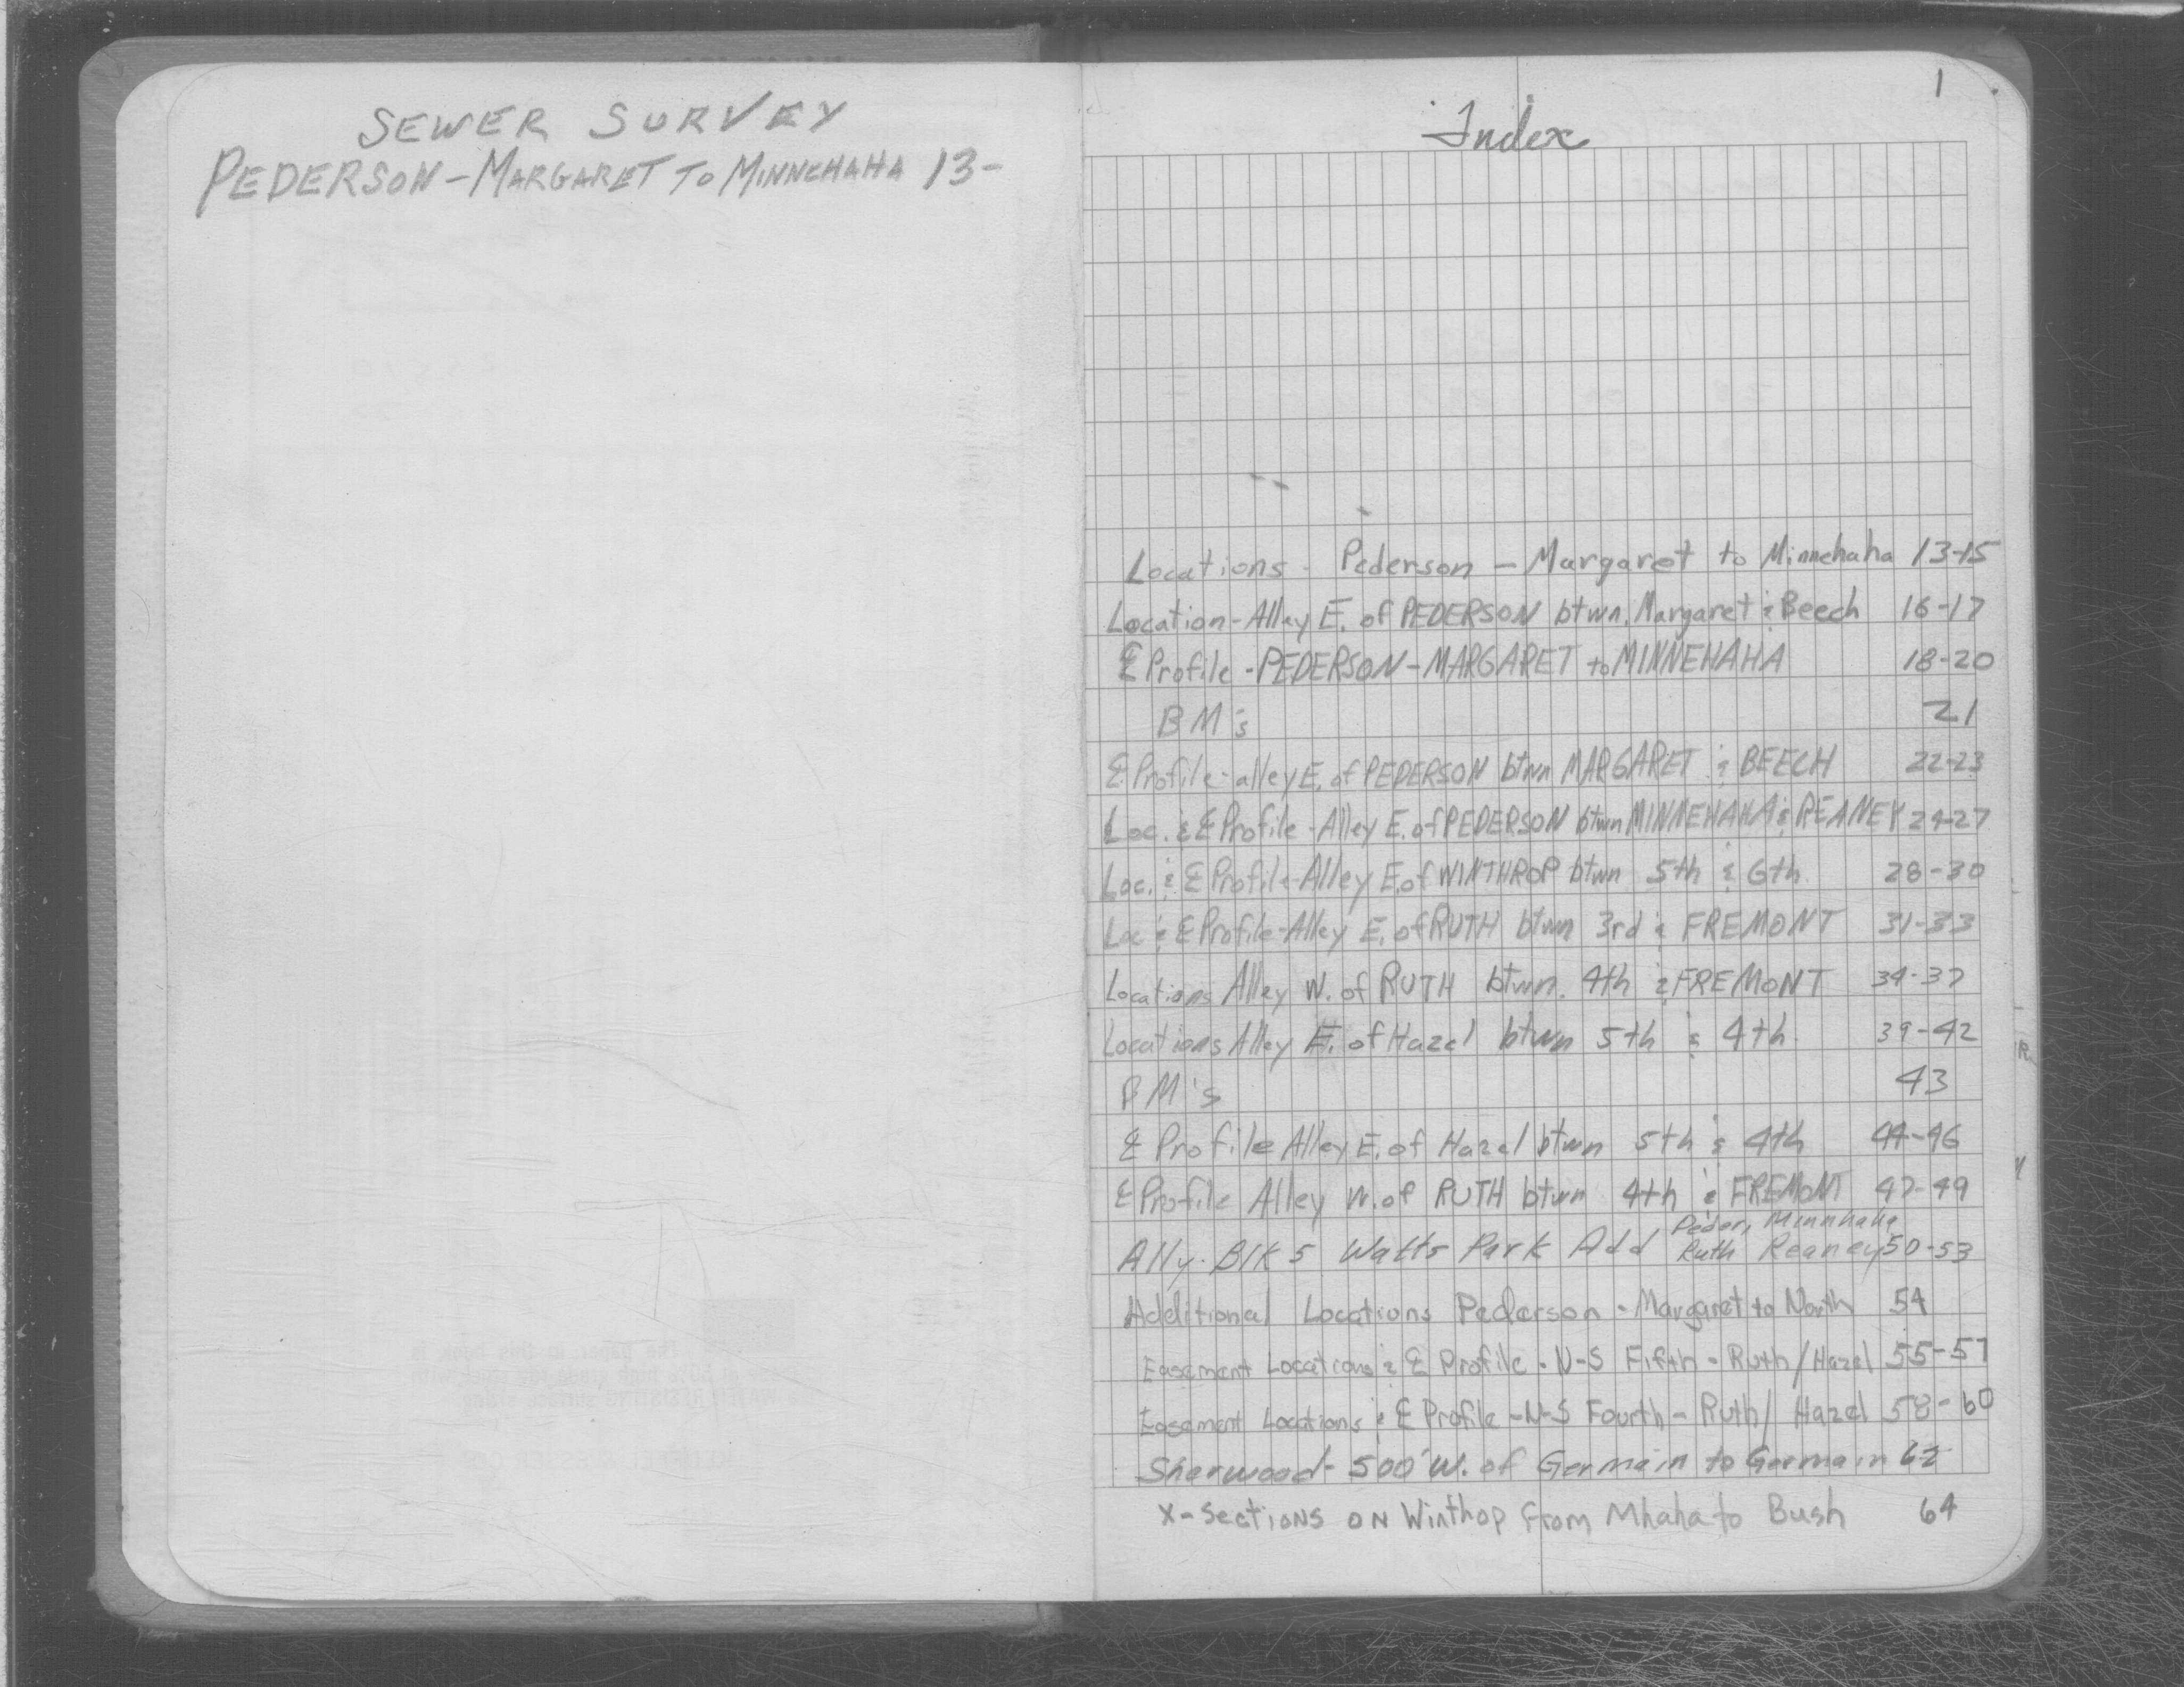 SEWER SURVEY
PEDERSON - MARGARET TO MINNEHAHA 13-
1
Index
Locations - Pederson - Margaret to Minnehaha 13-15
Location - Alley E. of PEDERSON btwn. Margaret & Beech 16-17
℄ Profile - PEDERSON - MARGARET to MINNEHAHA 18-20
BM's 21
℄ Profile - alley E. of PEDERSON btwn MARGARET & BEECH 22-23
Loc. & ℄ Profile - Alley E. of PEDERSON btwn MINNEHAHA & REANEY 24-27
Loc. & ℄ Profile - Alley E. of WINTHROP btwn 5th & 6th 28-30
Loc & ℄ Profile - Alley E. of RUTH btwn 3rd & FREMONT 31-33
Locations Alley W. of RUTH btwn. 4th & FREMONT 34-37
Locations Alley E. of Hazel btwn 5th & 4th. 39-42
BM's 43
℄ Profile Alley E. of Hazel btwn 5th & 4th 44-46
℄ Profile Alley W. of RUTH btwn 4th & FREMONT 47-49
Peder, Minnhaha
Ally. Blk 5 Watts Park Add Ruth Reaney 50-53
Additional Locations Pederson - Margaret to North 54
Easement Locations & ℄ Profile - N-S Fifth - Ruth/Hazel 55-57
Easement Locations & ℄ Profile - N-S Fourth - Ruth/Hazel 58-60
Sherwood - 500' W. of Germain to Germain 62
X-Sections ON Winthop From Mhaha to Bush 64